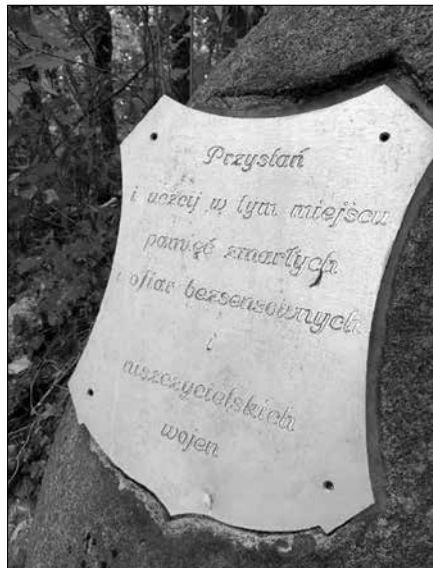 Przystań
i uczcij w tym miejscu
pamięć zmarłych
i ofiar bezsensownych
i
niszczycielskich
wojen